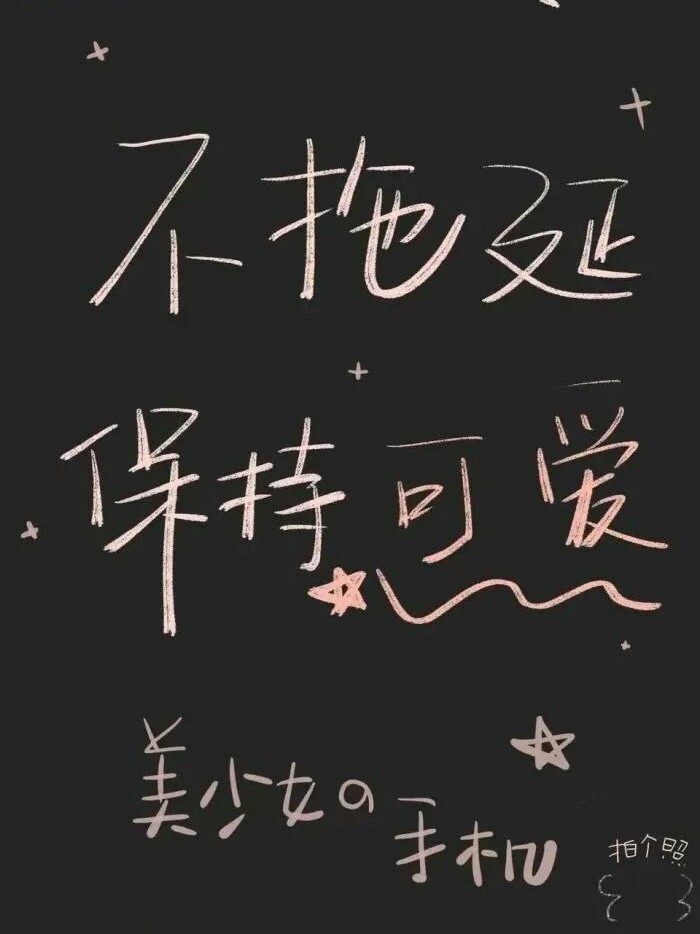 不拖延
保持可爱
美少女の
手机
拍个照